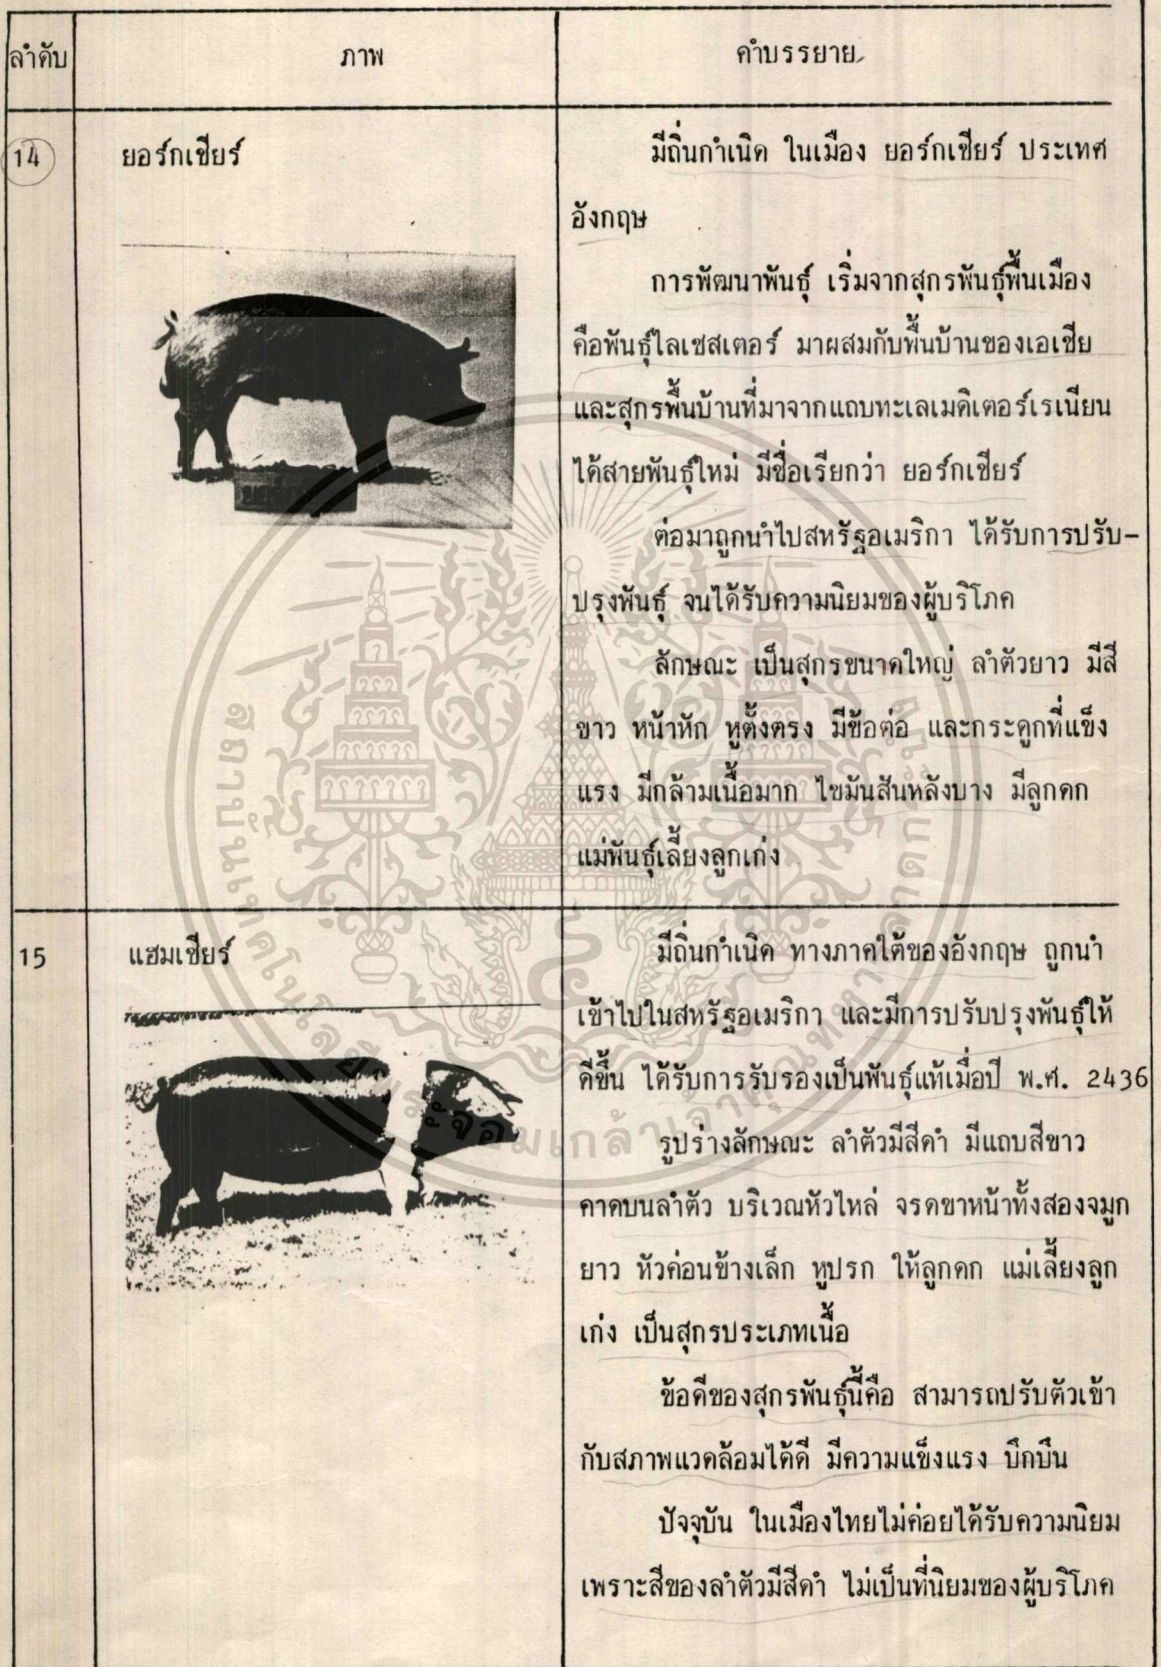 ลำดับ
ภาพ
คำบรรยาย
14
ยอร์กเชียร์
มีถิ่นกำเนิด ในเมือง ยอร์กเชียร์ ประเทศ
อังกฤษ
การพัฒนาพันธุ์ เริ่มจากสุกรพันธุ์พื้นเมือง
คือพันธุ์ไลเซสเตอร์ มาผสมกับพื้นบ้านของเอเชีย
และสุกรพื้นบ้านที่มาจากแถบทะเลเมดิเตอร์เรเนียน
ได้สายพันธุ์ใหม่ มีชื่อเรียกว่า ยอร์กเชียร์
ต่อมาถูกนำไปสหรัฐอเมริกา ได้รับการปรับ-
ปรุงพันธุ์ จนได้รับความนิยมของผู้บริโภค
ลักษณะ เป็นสุกรขนาดใหญ่ ลำตัวยาว มีสี
ขาว หน้าหัก หูตั้งตรง มีข้อต่อ และกระดูกที่แข็ง
แรง มีกล้ามเนื้อมาก ไขมันสันหลังบาง มีลูกดก
แม่พันธุ์เลี้ยงลูกเก่ง
15
แฮมเชียร์
มีถิ่นกำเนิด ทางภาคใต้ของอังกฤษ ถูกนำ
เข้าไปในสหรัฐอเมริกา และมีการปรับปรุงพันธุ์ให้
ดีขึ้น ได้รับการรับรองเป็นพันธุ์แท้เมื่อปี พ.ศ. 2436
รูปร่างลักษณะ ลำตัวมีสีดำ มีแถบสีขาว
คาดบนลำตัว บริเวณหัวไหล่ จรดขาหน้าทั้งสองจมูก
ยาว หัวค่อนข้างเล็ก หูปรก ให้ลูกดก แม่เลี้ยงลูก
เก่ง เป็นสุกรประเภทเนื้อ
ข้อดีของสุกรพันธุ์นี้คือ สามารถปรับตัวเข้า
กับสภาพแวดล้อมได้ดี มีความแข็งแรง บึกบึน
ปัจจุบัน ในเมืองไทยไม่ค่อยได้รับความนิยม
เพราะสีของลำตัวมีสีดำ ไม่เป็นที่นิยมของผู้บริโภค
สถาบันเทคโนโลยีพระจอมเกล้าเจ้าคุณทหารลาดกระบัง